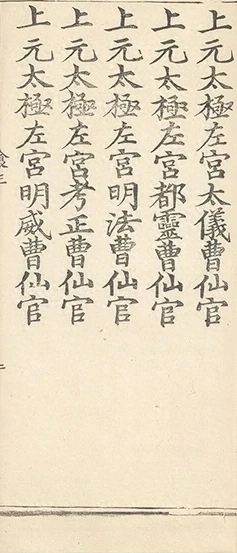 上元太極左宮太儀曹仙官
上元太極左宮都靈曹仙官
上元太極左宮明法曹仙官
上元太極左宮考正曹仙官
上元太極左宮明威曹仙官